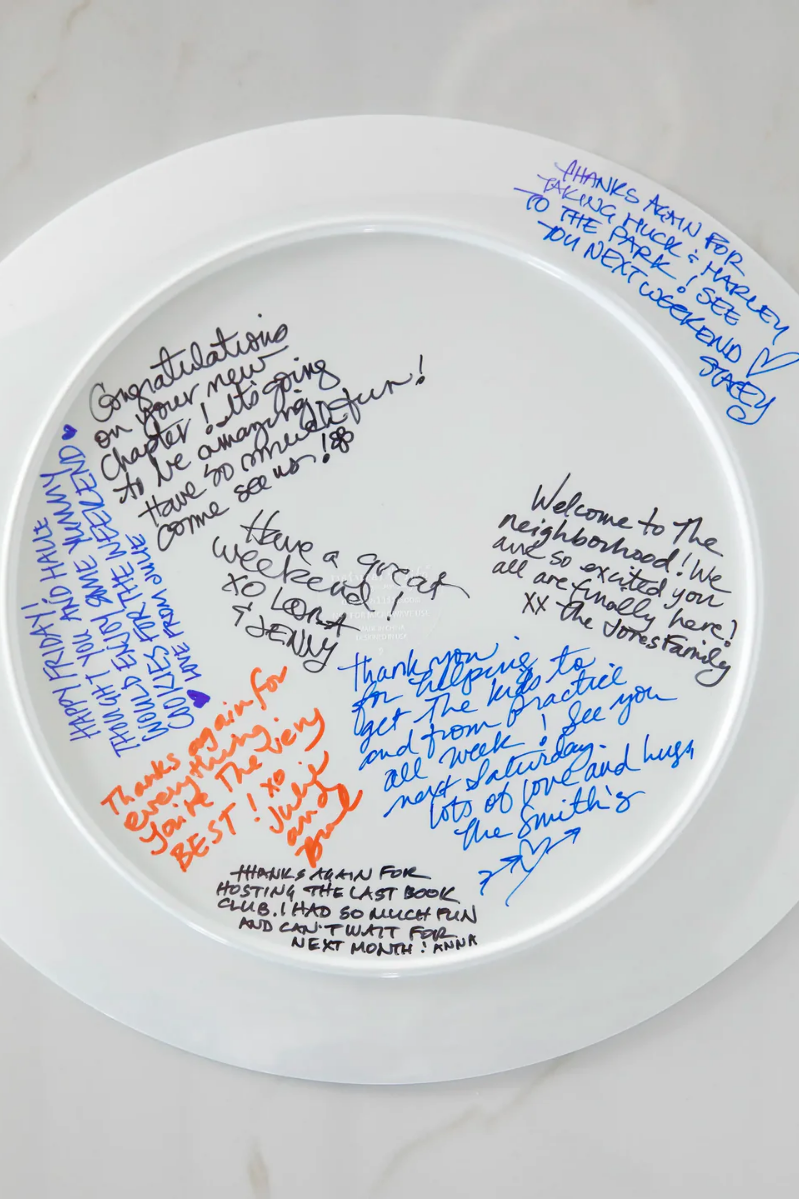 THANKS AGAIN FOR
TAKING HUCK & HARLEY
TO THE PARK! SEE
YOU NEXT WEEKEND ♡
STACEY
Congratulations
on your new
Chapter! It's going
to be amazing
Have so much fun!
come see us!
HAPPY FRIDAY!
THOUGHT YOU AND HALIE
WOULD ENJOY SOME YUMMY
COOKIES FOR THE WEEKEND ♥
♥ LOVE FROM JULIE
Have a great
weekend!
XO LORA
& JENNY
Welcome to The
neighborhood! We
are so excited you
all are finally here!
XX The Jones Family
Thank you
for helping
get The kids to
and from practice
all week! See you
next Saturday.
lots of love and hugs
The Smith's
Thanks again for
everything.
You're The very
BEST! XO
Julie
and
THANKS AGAIN FOR
HOSTING THE LAST BOOK
CLUB. I HAD SO MUCH FUN
AND CAN'T WAIT FOR
NEXT MONTH! ANNA